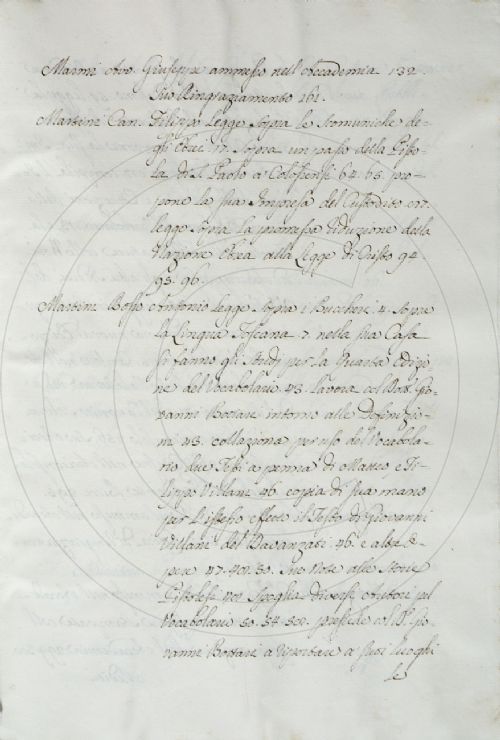 Marmi Avv. Giuseppe ammesso nell'Accademia 132.
Suo Ringraziamento 161.
Martini Can. Filippo Legge sopra le scomuniche de-
gli Ebrei 17. sopra un passo della Pisto-
la di S. Paolo a Colossensi 64. 65. pro-
pone la sua Impresa del Custodito
legge sopra la promessa riduzione della
Nazione Ebrea alla Legge di Cristo 94.
95. 96.
Martini Rosso Antonio legge sopra i Buccheri 4. sopra
la Lingua Toscana 7. nella sua Casa
si fanno gli studj per la Quarta Edizio-
ne del Vocabolario 43. lavora col Dott. Gio-
vanni Bottari intorno alle Definizio-
ni 43. collaziona per uso del Vocabola-
rio due Testi a penna di Matteo, e Fi-
lippo Villani 46. copia di sua mano
per l'istesso effetto il Testo di Giovanni
Villani del Davanzati 46. e altre O-
pere 47. 50. sue Note alle Storie
Pistolesi Spoglia diversi Autori pel
Vocabolario 50. 54. prosiede col D. Gio-
vanni Bottari a riportare a suoi luoghi
le